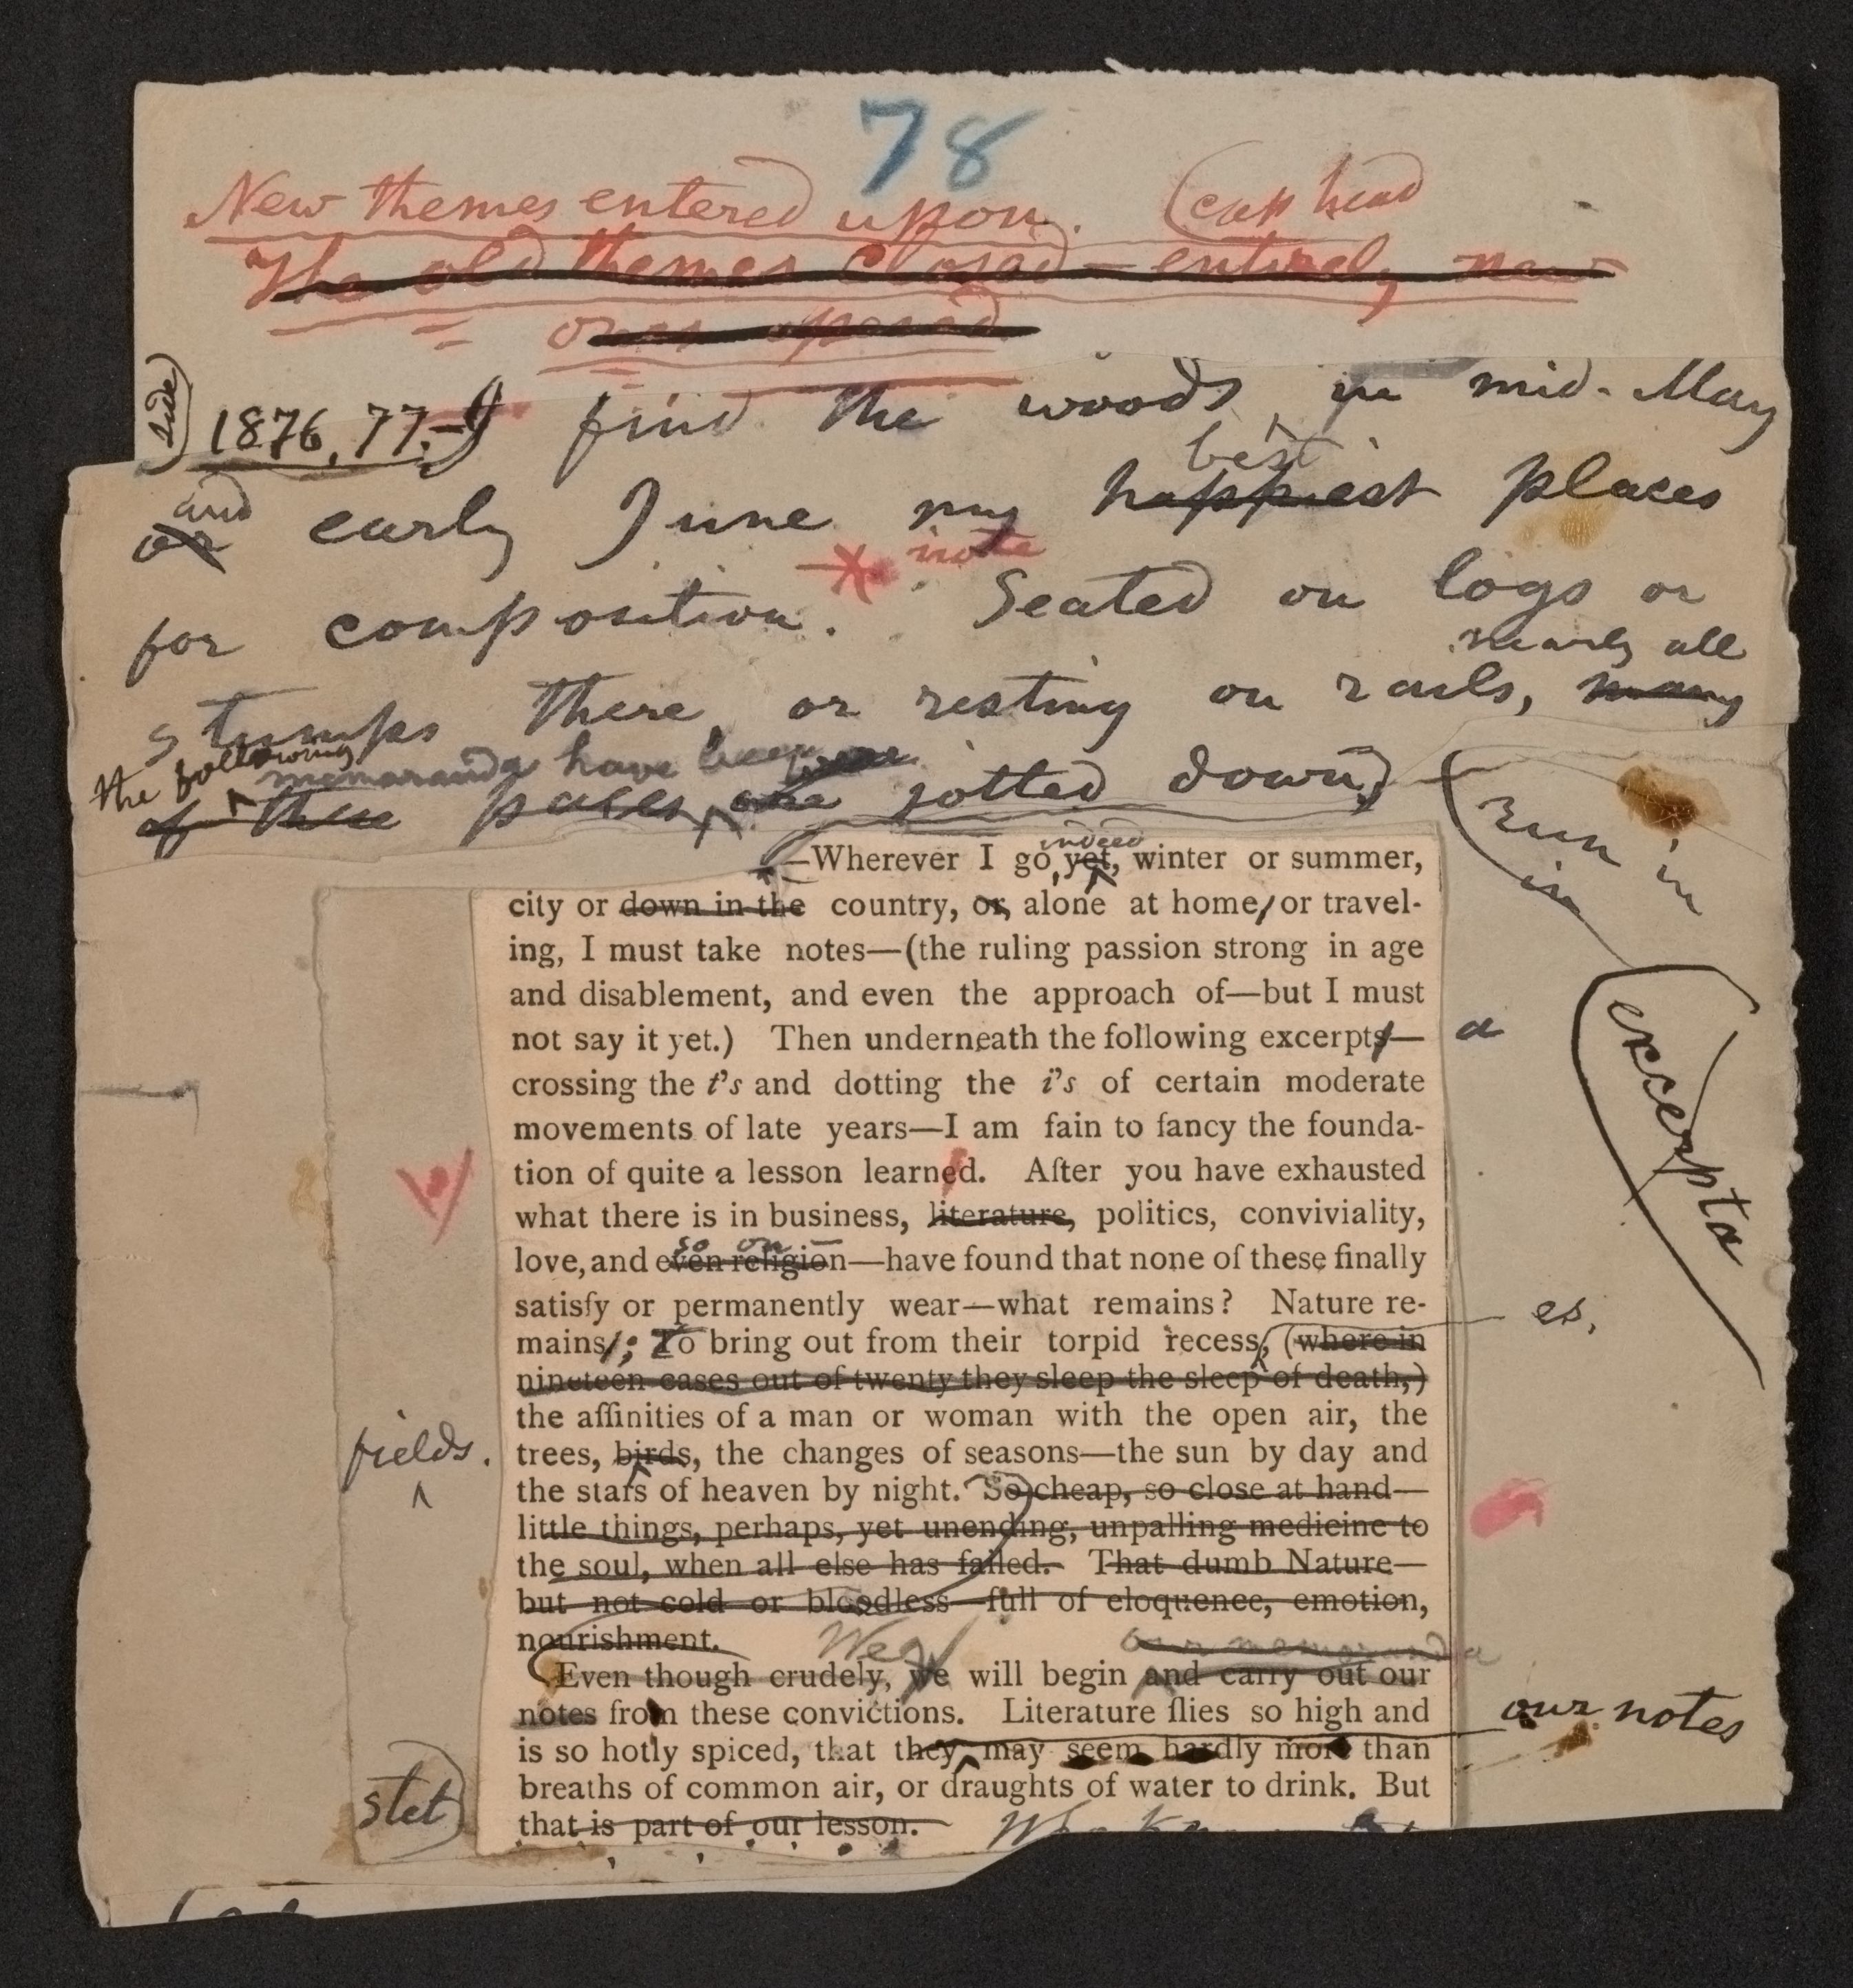 78
New themes entered upon. (cap head
The old themes closed — entirely new
ones opened
side)
1876, 77.— I find the woods in mid-May
best
and
or early June my happiest places
* note
for composition. Seated on logs or
nearly all
stumps there, or resting on rails, many
the following memoranda have been
of these pages, are jotted down.
(run in
indeed
—Wherever I go, yet, winter or summer,
city or down in the country, or, alone at home, or travel-
ing, I must take notes—(the ruling passion strong in age
and disablement, and even the approach of—but I must
not say it yet.) Then underneath the following excerpts— a
crossing the t's and dotting the i's of certain moderate
excerpta
movements of late years—I am fain to fancy the founda-
tion of quite a lesson learned. After you have exhausted
what there is in business, literature, politics, conviviality,
so on
love, and even religion—have found that none of these finally
satisfy or permanently wear—what remains? Nature re-
es,
mains; To bring out from their torpid recess, (where in
nineteen cases out of twenty they sleep the sleep of death,)
the affinities of a man or woman with the open air, the
fields.
trees, birds, the changes of seasons—the sun by day and
the stars of heaven by night. So cheap, so close at hand—
little things, perhaps, yet unending, unpalling medicine to
the soul, when all else has failed. That dumb Nature—
but not cold or bloodless—full of eloquence, emotion,
nourishment.
We our memoranda
Even though crudely, we will begin and carry out our
notes from these convictions. Literature flies so high and
our notes
is so hotly spiced, that they may seem hardly more than
breaths of common air, or draughts of water to drink. But
stet)
that is part of our lesson.